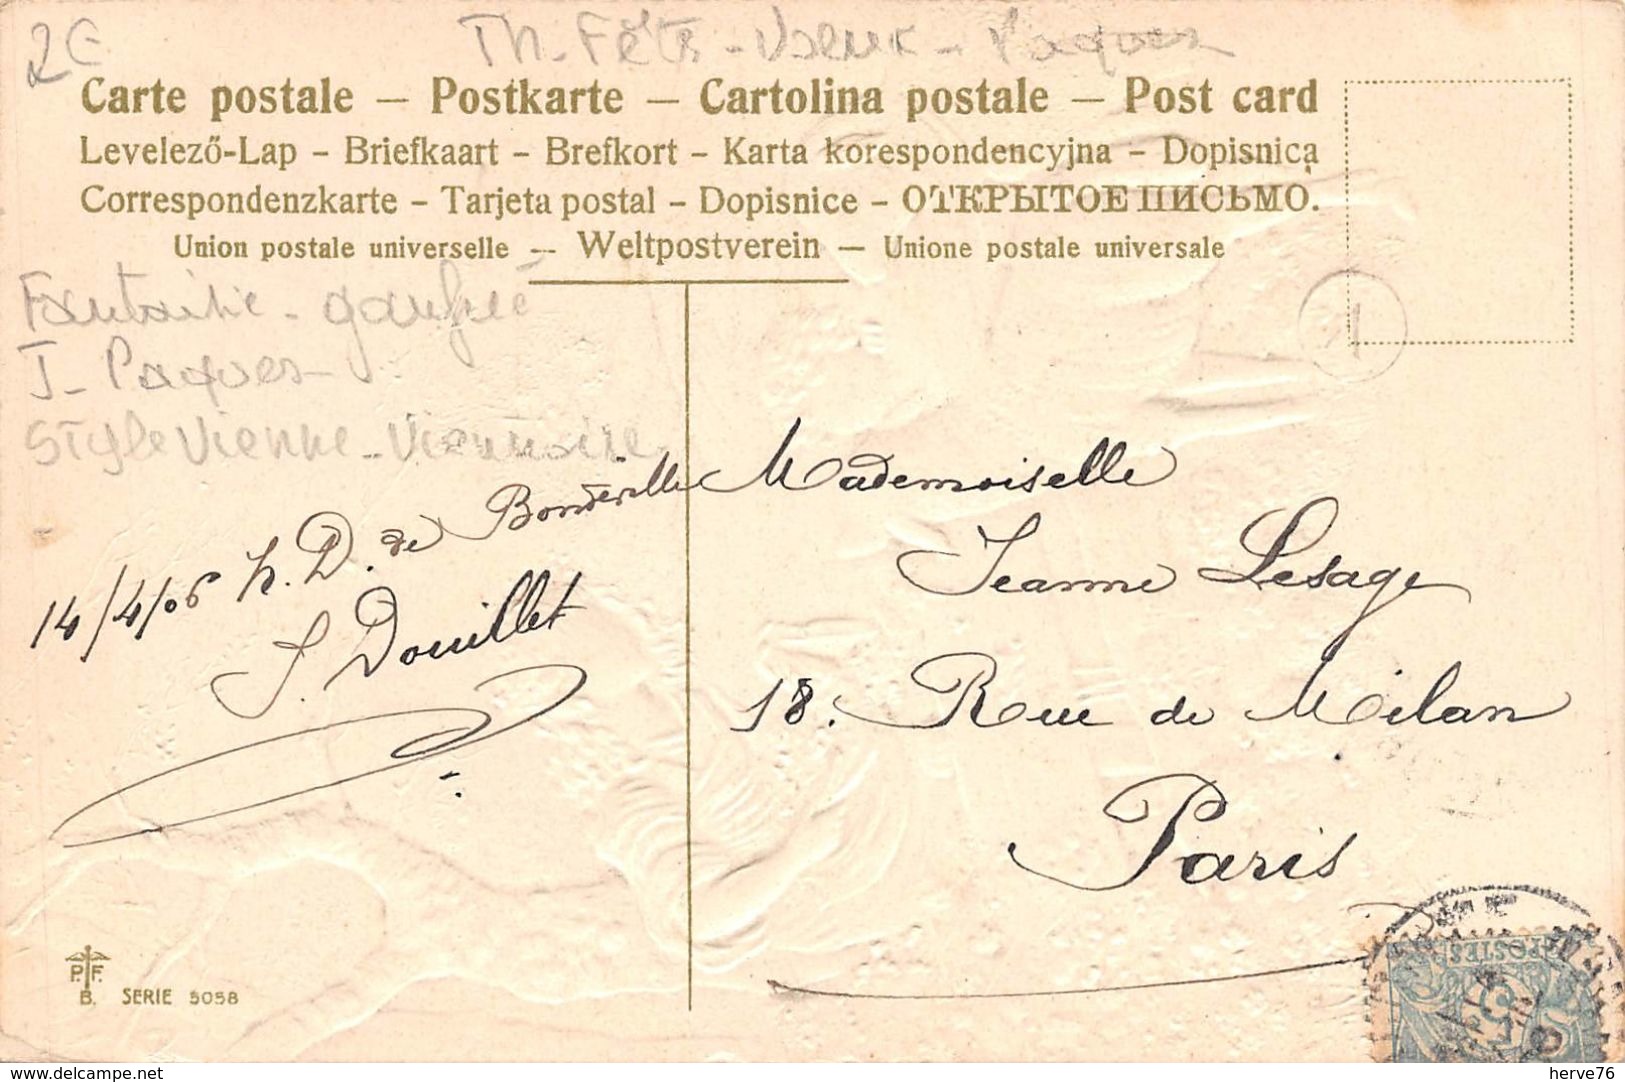 2€
Th. Fêtes - Voeux - Paques
Carte postale – Postkarte – Cartolina postale – Post card
Levelező-Lap – Briefkaart – Brefkort – Karta korespondencyjna – Dopisnica
Correspondenzkarte – Tarjeta postal – Dopisnice – ОТКРЫТОЕ ПИСЬМО.
Union postale universelle — Weltpostverein — Unione postale universale
Fantaisie - gaufrée
J - Paques
Style Vienne - Viennoise
1
14/4/06 N. D. de Bondeville
J. Douillet
Mademoiselle
Jeanne Lesage
18. Rue de Milan
Paris
P. F.
B. SERIE 5058
POSTES
5
www.delcampe.net
herve76